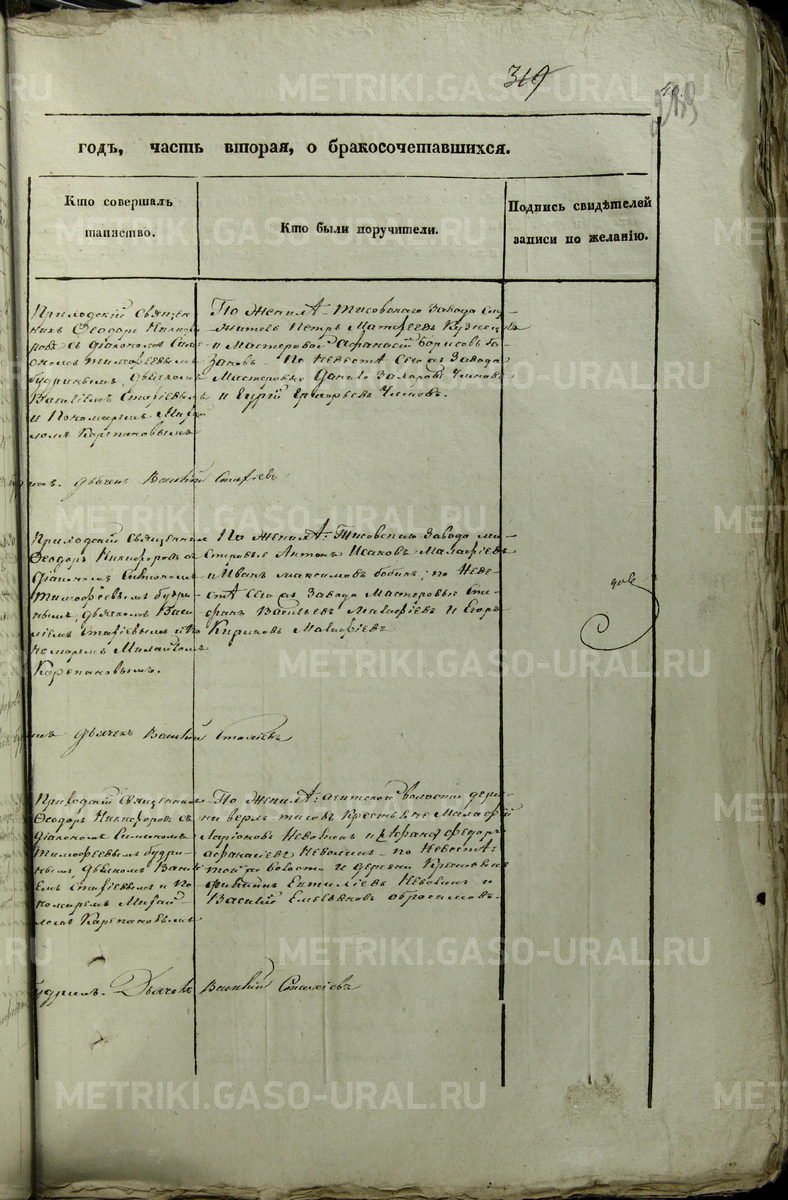 319
40.
годъ, часть вторая, о бракосочетавшихся.
Кто совершалъ
таинство.
Кто были поручители.
Подпись свидѣтелей
записи по желанію.
Приходский Священ
никъ Феодоръ Никифо
ровъ съ діакономъ Сим
ономъ Тимофеевымъ
Будринымъ, дьячкомъ
Василіемъ Стафіевымъ
и Пономаремъ Михай
ломъ Карпаковымъ
По Женихѣ: Тисовскаго Завода Слу
житель Петръ Матфеевъ Кузнецовъ
и Мастеровой Афанасій Борисовъ
По Невестѣ Сего жъ Завода
Мастеровые Данило Захаровъ
и Егоръ Григорьевъ
дьячекъ Василій Стафіевъ
Приходский Священник
Феодоръ Никифоровъ съ
діакономъ Симономъ
Тимофеевымъ Будри
нымъ, дьячкомъ Васи
ліемъ Стафіевымъ и По
номаремъ Михайломъ
Карпаковымъ.
По Женихѣ: Тисовскаго Завода Ма
стеровые Антонъ Исаковъ Малафіевъ
и Иванъ Максимовъ Бобинъ; по Неве
стѣ Сего жъ Завода Мастеровые Сте
фанъ Васильевъ Малафіевъ и Егоръ
Кириловъ Малафіевъ
дьячекъ Василій Стафіевъ
Приходский Священник
Феодоръ Никифоровъ съ
діакономъ Симономъ
Тимофеевымъ Будри
нымъ, дьячкомъ Васи
ліемъ Стафіевымъ и По
номаремъ Михай
ломъ Карпаковымъ
По Женихѣ: Ачитской волости дерев
ни верхъ Тисовъ Крестьяне Малафій
Ларіоновъ Неволинъ и Феодоръ
Афанасіевъ Неволинъ — по Невестѣ:
той же волости и деревни Крестьяне
Евтихіевъ Неволинъ и
Василій Емельяновъ
Будринъ. Дьячекъ Василій Стафіевъ
METRIKI.GASO-URAL.RU
METRIKI.GASO-URAL.RU
METRIKI.GASO-URAL.RU
METRIKI.GASO-URAL.RU
METRIKI.GASO-URAL.RU
METRIKI.GASO-URAL.RU
METRIKI.GASO-URAL.RU
METRIKI.GASO-URAL.RU